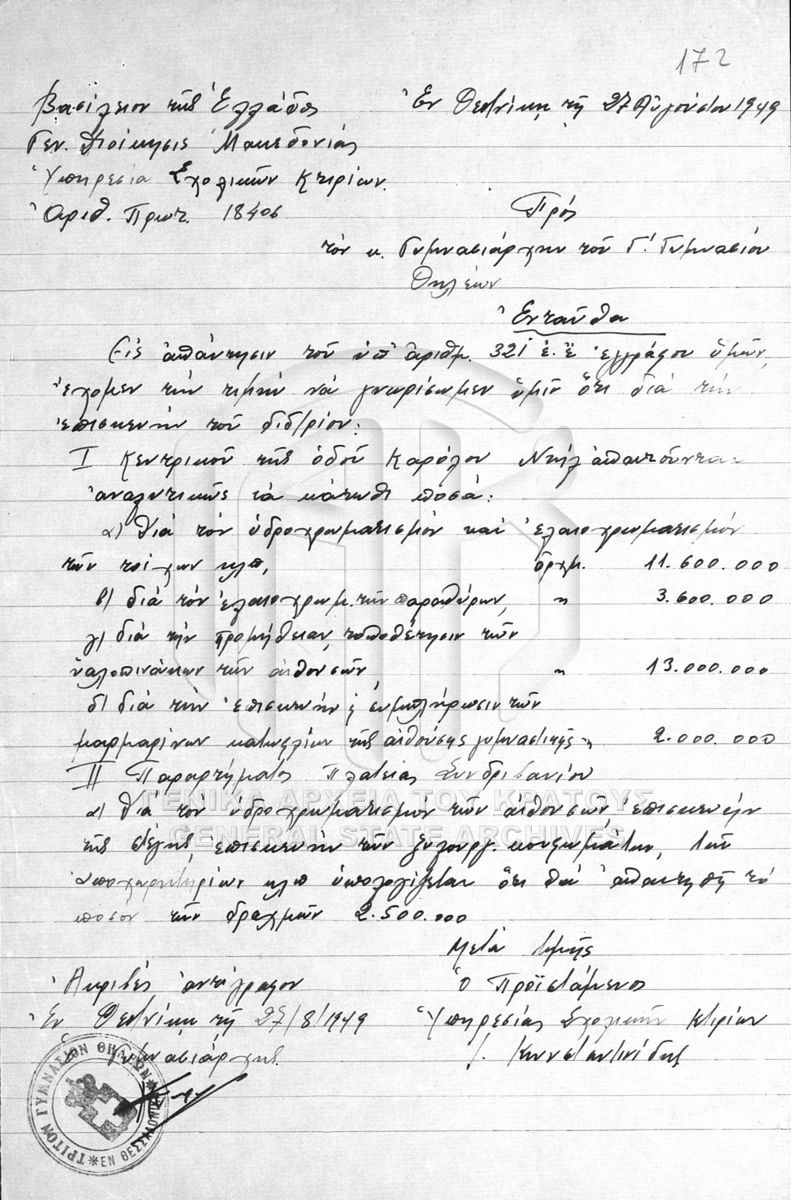 172
Βασίλειον τῆς Ἑλλάδος
Ἐν Θεσ/νίκῃ τῇ 27 Αὐγούστου 1949
Γεν. Διοίκησις Μακεδονίας
Ὑπηρεσία Σχολικῶν Κτιρίων
Ἀριθ. Πρωτ. 18406
Πρός
τὸν κ. Γυμνασιάρχην τοῦ Γ΄. Γυμνασίου
Θηλέων
Ἐνταῦθα
Εἰς ἀπάντησιν τοῦ ὑπ' ἀριθμ. 321 ἐ. ἔ ἐγγράφου ὑμῶν,
ἔχομεν τὴν τιμὴν νὰ γνωρίσωμεν ὑμῖν ὅτι διὰ τὴν
ἐπισκευὴν τοῦ διδ/ρίου:
I Κεντρικοῦ τῆς ὁδοῦ Καρόλου Ντὴλ ἀπαιτοῦνται
ἀναλυτικῶς τὰ κάτωθι ποσά:
α) Διὰ τὸν ὑδροχρωματισμὸν καὶ ἐλαιοχρωματισμὸν
τῶν τοίχων κλπ, δρχμ. 11.600.000
β) διὰ τὸν ἐλαιοχρωμ. τῶν παραθύρων, " 3.600.000
γ) διὰ τὴν προμήθειαν, τοποθέτησιν τῶν
ὑαλοπινάκων τῶν αἰθουσῶν, " 13.000.000
δ) διὰ τὴν ἐπισκευὴν ϗ συμπλήρωσιν τῶν
μαρμαρίνων κατωφλίων τῆς αἰθούσης γυμναστικῆς " 2.000.000
II Παραρτήματος Πλατείας Συνδριβανίου
ΓΕΝΙΚΑ ΑΡΧΕΙΑ ΤΟΥ ΚΡΑΤΟΥΣ
GENERAL STATE ARCHIVES
α) Διὰ τὸν ὑδροχρωματισμὸν τῶν αἰθουσῶν ἐπισκευὴν
τῆς στέγης, ἐπισκευὴν τῶν ξυλουργ. κουφωμάτων, τῶν
ἀποχωρητηρίων κλπ ὑπολογίζεται ὅτι θὰ ἀπαιτηθῇ τὸ
ποσὸν τῶν δραχμῶν 2.500.000
Μετὰ τιμῆς
Ἀκριβὲς ἀντίγραφον
Ὁ Προϊστάμενος
Ἐν Θεσ/νίκῃ τῇ 27/8/1949
Ὑπηρεσίας Σχολικῶν Κτιρίων
Γυμνασιάρχης
Κωνσταντινίδης
ΤΡΙΤΟΝ ΓΥΜΝΑΣΙΟΝ ΘΗΛΕΩΝ
ΕΝ ΘΕΣΣΑΛΟΝΙΚΗ